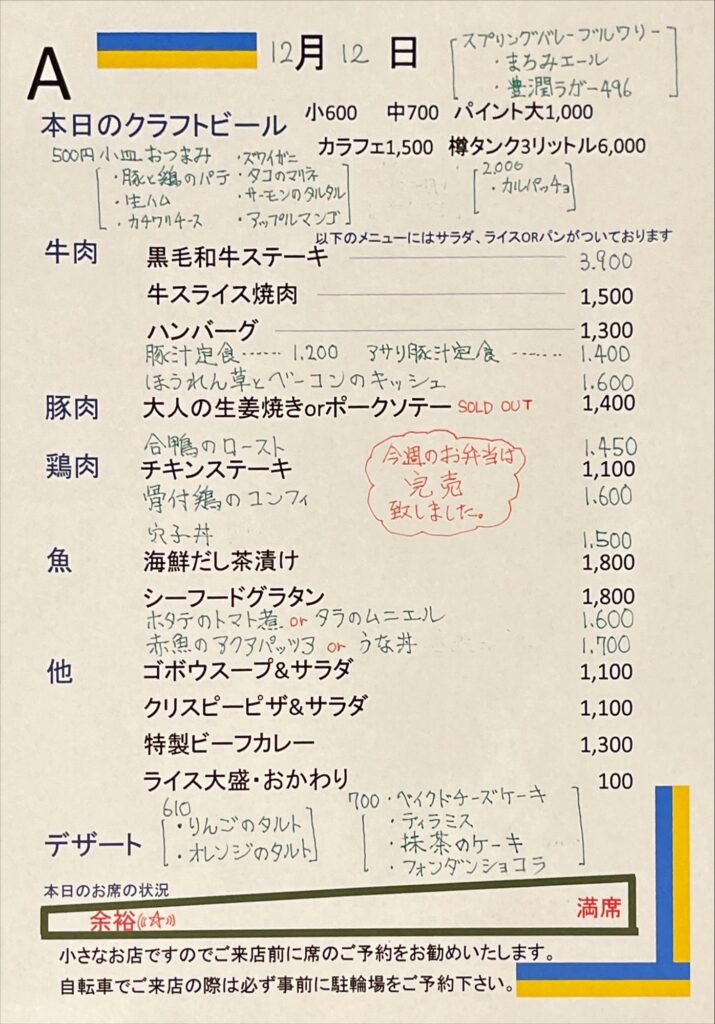 A
12月12日
スプリングバレーブルワリー
・まろみエール
・豊潤ラガー496
本日のクラフトビール 小600 中700 パイント大1,000
カラフェ1,500 樽タンク3リットル6,000
500円小皿おつまみ
・豚と鶏のパテ
・生ハム
・カチワリチーズ
・ズワイガニ
・タコのマリネ
・サーモンのタルタル
・アップルマンゴ
2,000
・カルパッチョ
以下のメニューにはサラダ、ライスORパンがついております
牛肉 黒毛和牛ステーキ 3.900
牛スライス焼肉 1,500
ハンバーグ 1,300
豚汁定食…… 1.200 アサリ豚汁定食 …… 1.400
ほうれん草とベーコンのキッシュ 1.600
豚肉 大人の生姜焼きorポークソテー SOLD OUT 1,400
合鴨のロースト 1.450
鶏肉 チキンステーキ 1,100
骨付鶏のコンフィ 1.600
今週のお弁当は
完売
致しました。
穴子丼 1.500
魚 海鮮だし茶漬け 1,800
シーフードグラタン 1,800
ホタテのトマト煮 or タラのムニエル 1.600
赤魚のアクアパッツア or うな丼 1.700
他 ゴボウスープ&サラダ 1,100
クリスピーピザ&サラダ 1,100
特製ビーフカレー 1,300
ライス大盛・おかわり 100
デザート
610
・りんごのタルト
・オレンジのタルト
700 ・ベイクドチーズケーキ
・ティラミス
・抹茶のケーキ
・フォンダンショコラ
本日のお席の状況
余裕((☆)) 満席
小さなお店ですのでご来店前に席のご予約をお勧めいたします。
自転車でご来店の際は必ず事前に駐輪場をご予約下さい。